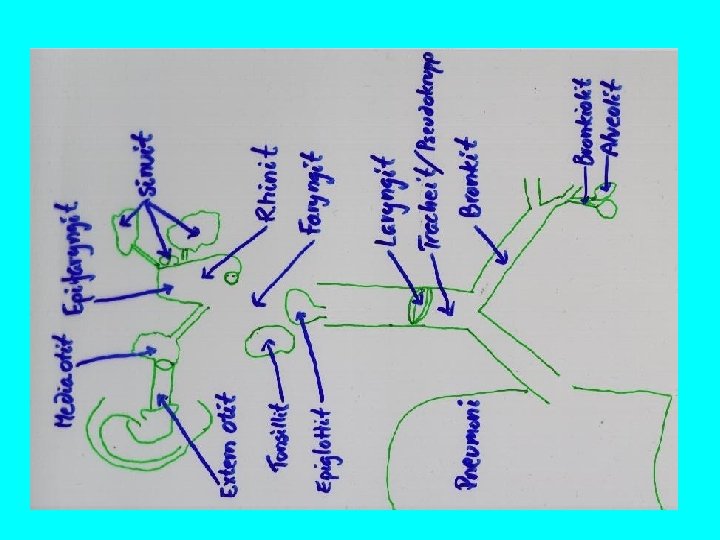 Mediaotit
Epifaryngit
Sinuit
Extern otit
Rhinit
Tonsillit
Faryngit
Epiglottit
Laryngit
Tracheit/Pseudokrupp
Bronkit
Pneumoni
Bronkiolit
Alveolit